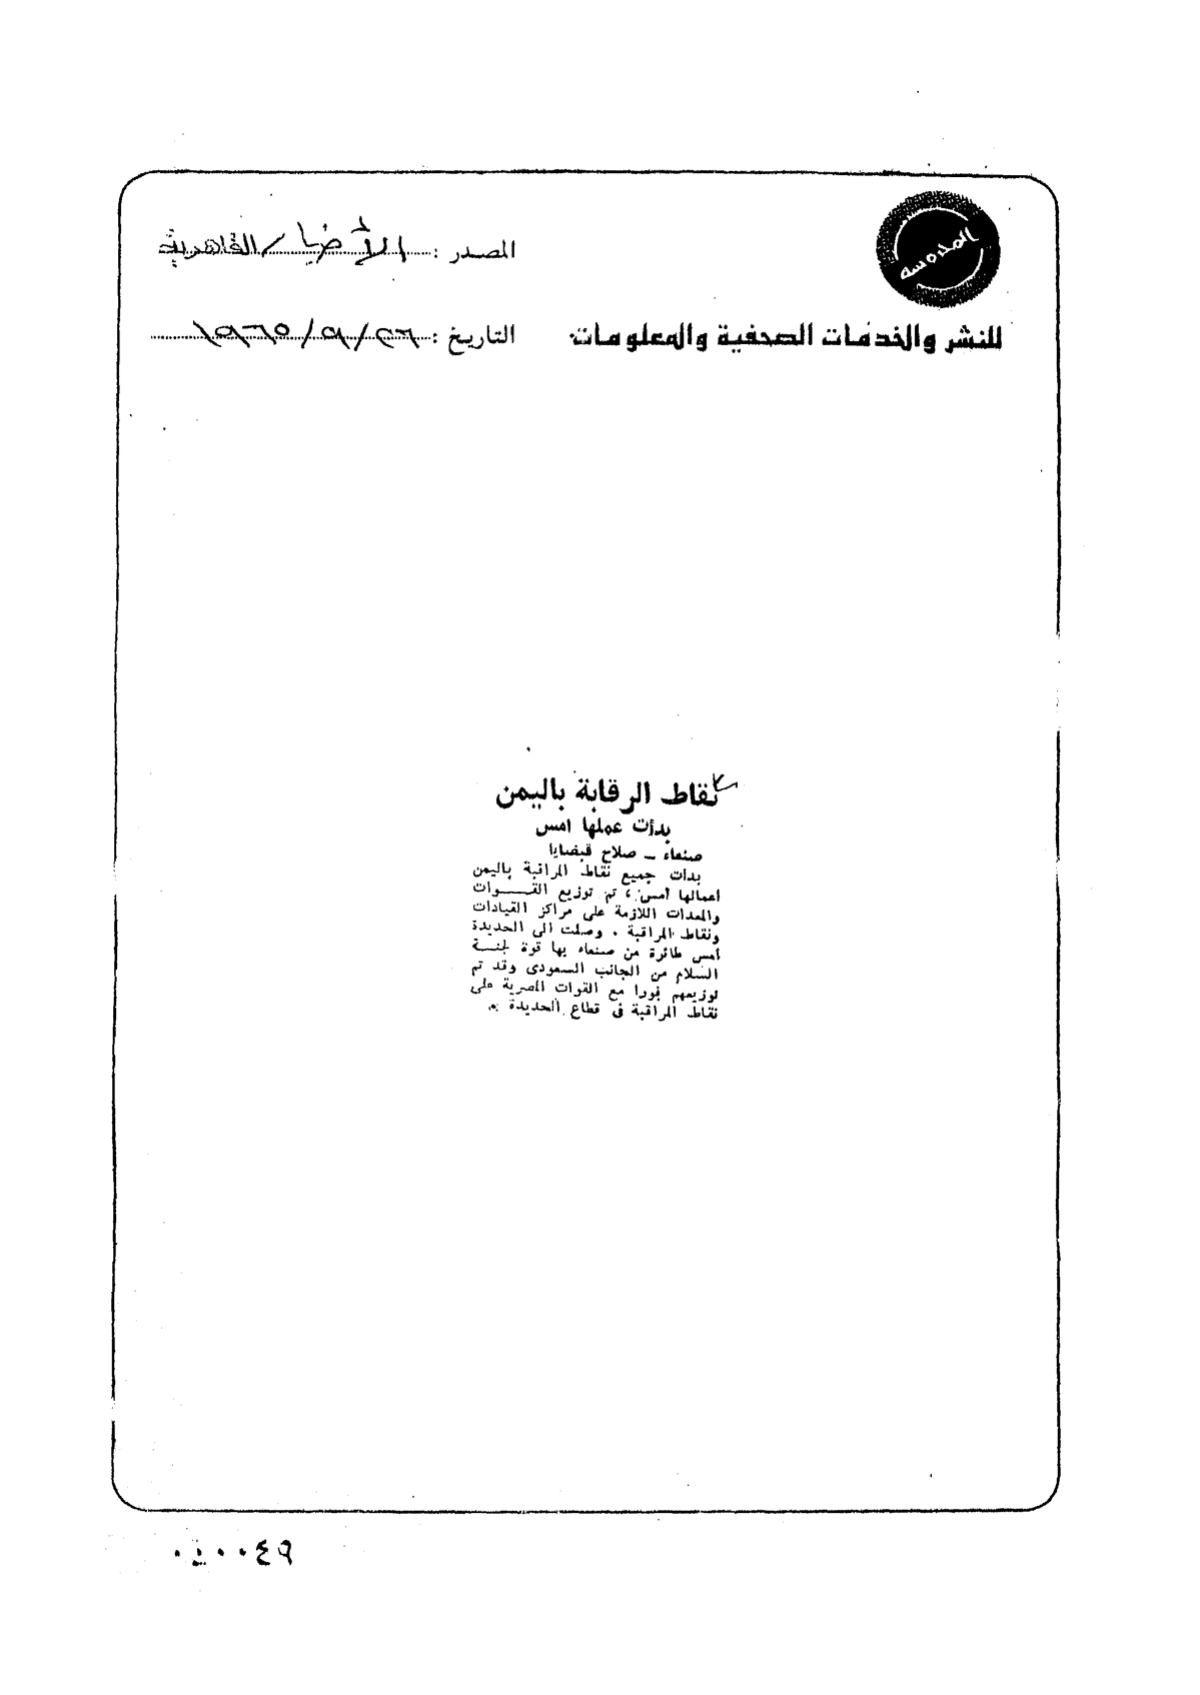 المحروسة
للنشر والخدمات الصحفية والمعلومات
المصدر : الأخبار القاهرية
التاريخ : ٢٦/٩/١٩٦٥
نقاط الرقابة باليمن
بدأت عملها امس
صنعاء ــ صلاح قبضايا
بدات جميع نقاط المراقبة باليمن
اعمالها أمس ، تم توزيع القـــوات
والمعدات اللازمة على مراكز القيادات
ونقاط المراقبة . وصلت الى الحديدة
أمس طائرة من صنعاء بها قوة لجنـــة
السلام من الجانب السعودى وقد تم
توزيعهم فورا مع القوات المصرية على
نقاط المراقبة فى قطاع الحديدة .
٤٩